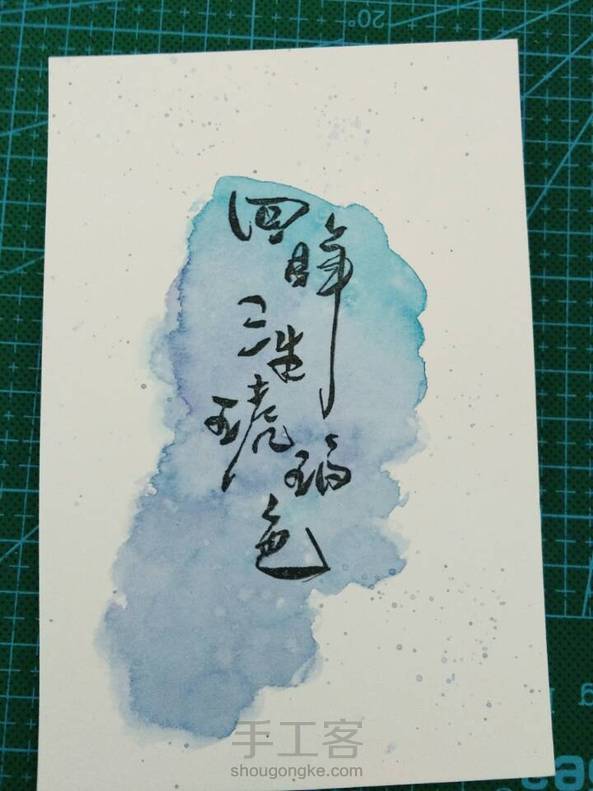 20°
回眸
三生
琥珀
色
手工客
shougongke.com